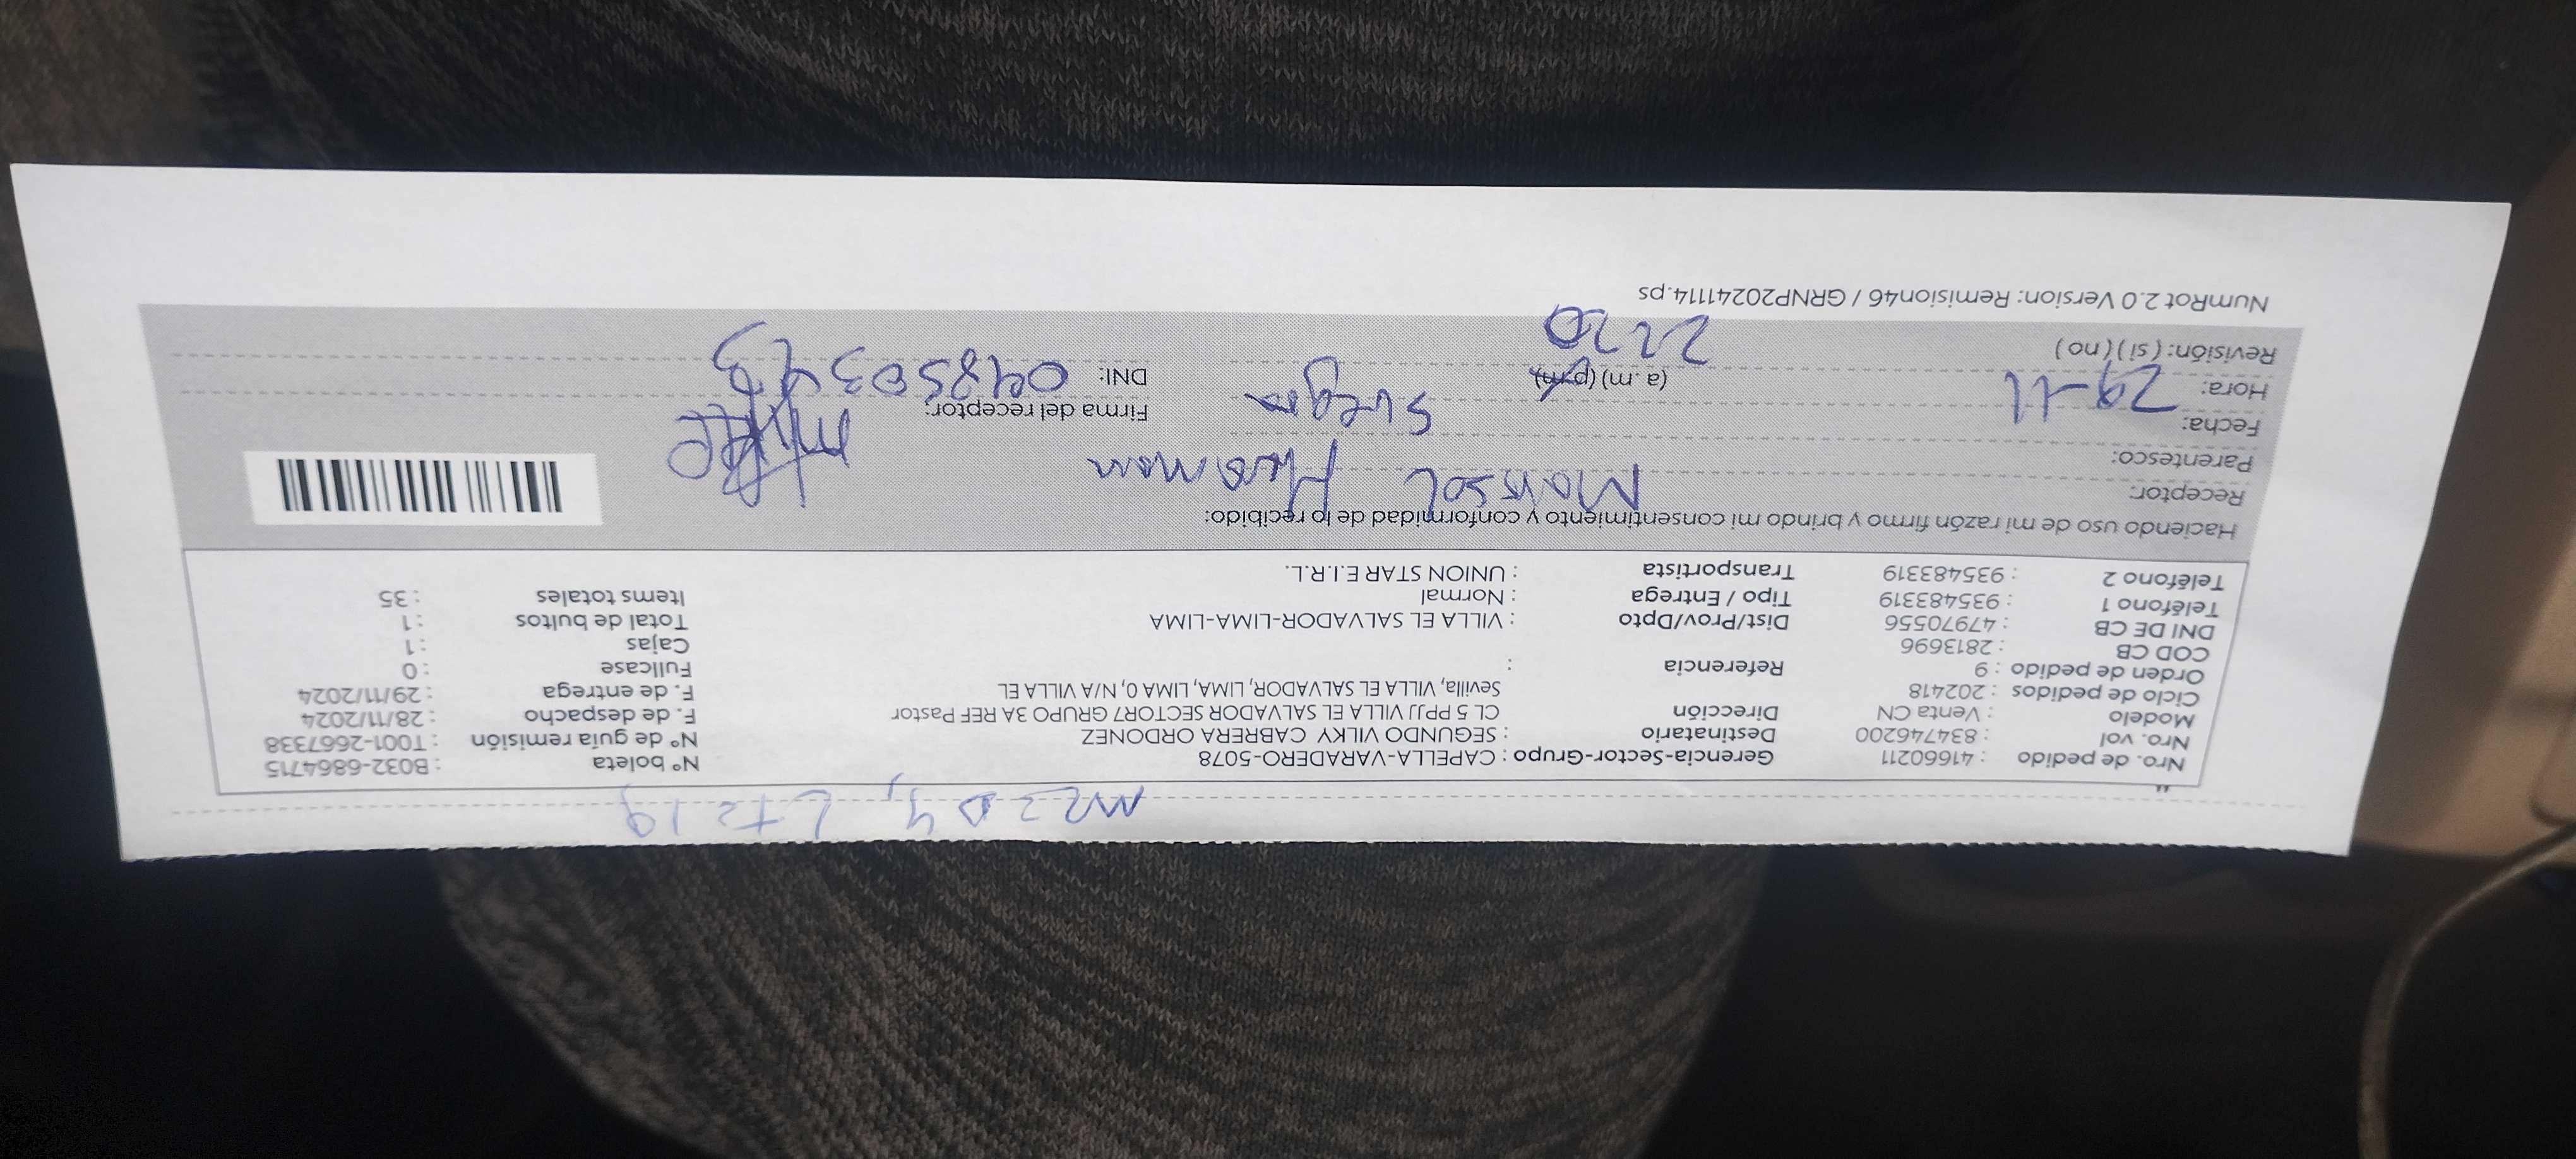 Mz D 4, Lt 19
Nro. de pedido : 41660211 Gerencia-Sector-Grupo : CAPELLA-VARADERO-5078 N° boleta : B032-6864715
Nro. vol : 834746200 Destinatario : SEGUNDO VILKY CABRERA ORDONEZ N° de guía remisión : T001-2667338
Modelo : Venta CN Dirección CL 5 PPJJ VILLA EL SALVADOR SECTOR7 GRUPO 3A REF Pastor F. de despacho : 28/11/2024
Ciclo de pedidos : 202418 Sevilla, VILLA EL SALVADOR, LIMA, LIMA 0, N/A VILLA EL F. de entrega : 29/11/2024
Orden de pedido : 9 Referencia : Fullcase : 0
COD CB : 2813696 Cajas : 1
DNI DE CB : 47970556 Dist/Prov/Dpto : VILLA EL SALVADOR-LIMA-LIMA Total de bultos : 1
Teléfono 1 : 935483319 Tipo / Entrega : Normal Items totales : 35
Teléfono 2 : 935483319 Transportista : UNION STAR E.I.R.L.
Haciendo uso de mi razón firmo y brindo mi consentimiento y conformidad de lo recibido:
Receptor: Marisol Huaman
Parentesco: Suegra
Fecha: 29-11 Firma del receptor:
Hora: 2220 (a.m) (p.m) DNI:
Revisión: ( si ) ( no )
NumRot 2.0 Version: Remision46 / GRNP20241114.ps